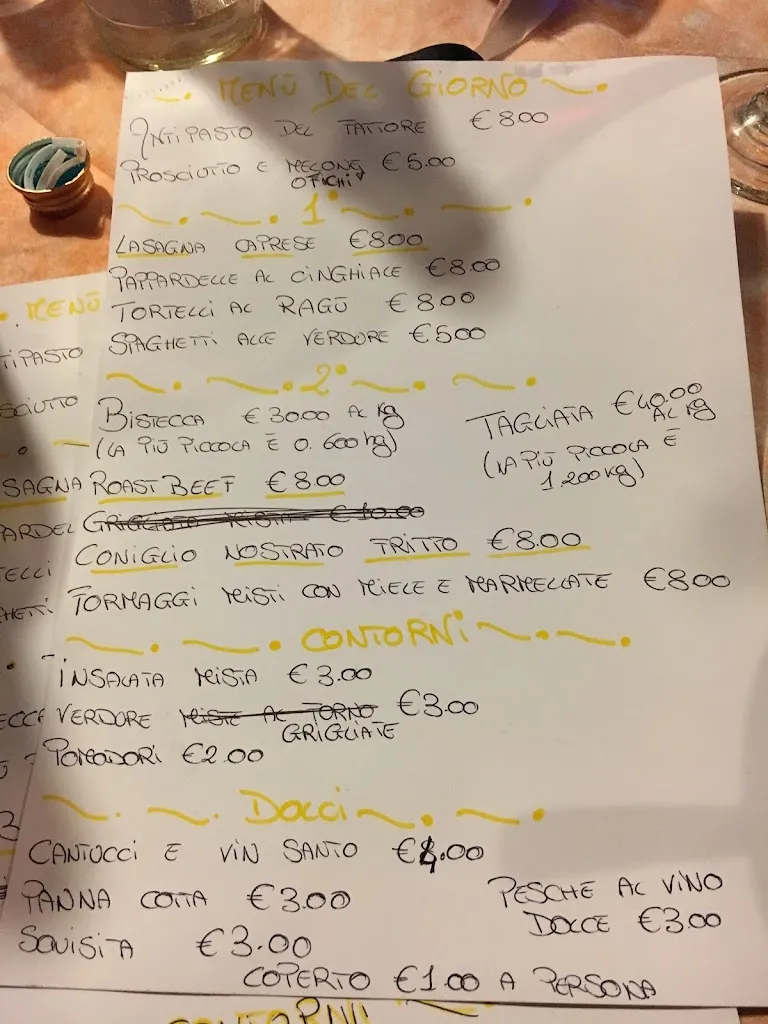 MENÙ DEL GIORNO
ANTIPASTO DEL FATTORE €8.00
PROSCIUTTO E MELONE €5.00
O FICHI
1°
LASAGNA CAPRESE €8.00
PAPPARDELLE AL CINGHIALE €8.00
TORTELLI AL RAGÙ €8.00
SPAGHETTI ALLE VERDURE €5.00
2°
BISTECCA €30.00 AL KG
(LA PIÙ PICCOLA È 0.600 kg)
TAGLIATA €40.00
AL KG
(LA PIÙ PICCOLA È
1,200 KG)
ROAST BEEF €8.00
GRIGLIATA MISTA €10.00
CONIGLIO NOSTRATO FRITTO €8.00
FORMAGGI MISTI CON MIELE E MARMELLATE €8.00
CONTORNI
INSALATA MISTA €3.00
VERDURE MISTE AL FORNO €3.00
GRIGLIATE
POMODORI €2.00
DOLCI
CANTUCCI E VIN SANTO €4.00
PANNA COTTA €3.00
SQUISITA €3.00
PESCHE AL VINO
DOLCE €3.00
COPERTO €1.00 A PERSONA
MENÙ
TIPASTO
SCIUTTO
SAGNA
PARDEL
TELLI
GHETTI
ECCA
CONTORNI